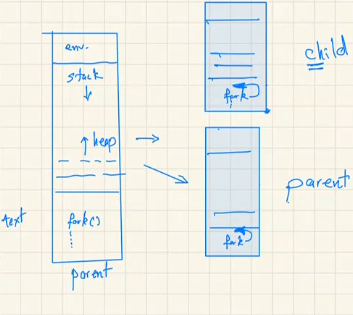 env.
stack
↓
↑ heap
text
fork()
parent
child
fork
parent
fork